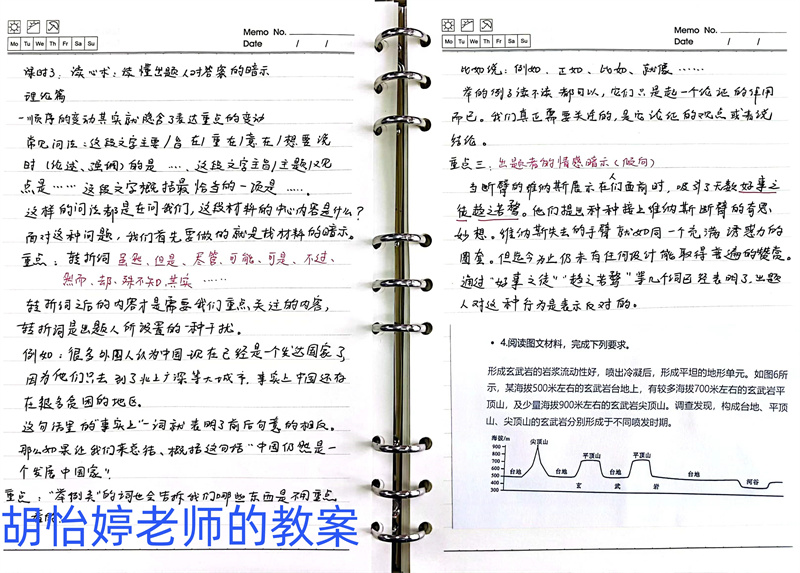 Memo No.
Mo Tu We Th Fr Sa Su
Date / /
课时3：读心术：读懂出题人对答案的暗示
理论篇
一顺序的变动其实就隐含了表达重点的变动
常见问法：这段文字主要/旨在/重在/意在/想要说
时（论述、强调）的是 …… 这段文字主旨/主题/观
点是 …… 这段文字概括最恰当的一项是 ……
这样的问法都是在问我们，这段材料的中心内容是什么？
面对这种问题，我们首先要做的就是找材料的暗示。
重点：转折词 虽然、但是、尽管、可能、可是、不过、
然而、却、殊不知、其实 ……
转折词之后的内容才是需要我们重点关注的内容，
转折词是出题人所设置的一种干扰。
例如：很多外国人认为中国现在已经是一个发达国家了
因为他们只去到了北上广深等大城市，事实上中国还存
在很多贫困的地区。
这句话里的"事实上"一词就表明了前后句意的相反。
那么如果让我们来总结、概括这句话"中国仍然是一
个发展中国家"。
重点：“举例类”的词也会告诉我们哪些东西是不用重点
胡怡婷老师的教案
Memo No.
Mo Tu We Th Fr Sa Su
Date / /
比如说：例如、正如、比如、就像 ……
举的例子读不读都可以，它们只是起一个论证的作用
而已。我们真正需要关注的，是它论证的观点或者说
结论。
重点三：出题者的情感暗示（倾向）
当断臂的维纳斯展示在人们面前时，吸引了无数好事之
徒趋之若鹜。他们提出种种接上维纳斯断臂的奇思
妙想。维纳斯失去的手臂就如同一个充满诱惑力的
图案。但迄今为止仍未有任何设计能取得普遍的赞意。
通过“好事之徒”“趋之若鹜”等几个词已经表明了，出题
人对这种行为是表示反对的。
• 4.阅读图文材料，完成下列要求。
形成玄武岩的岩浆流动性好，喷出冷凝后，形成平坦的地形单元。如图6所
示，某海拔500米左右的玄武岩台地上，有较多海拔700米左右的玄武岩平
顶山，及少量海拔900米左右的玄武岩尖顶山。调查发现，构成台地、平顶
山、尖顶山的玄武岩分别形成于不同喷发时期。
海拔/m
900
800
700
600
500
400
300
台地
尖顶山
台地
平顶山
台地
平顶山
台地
河谷
玄 武 岩